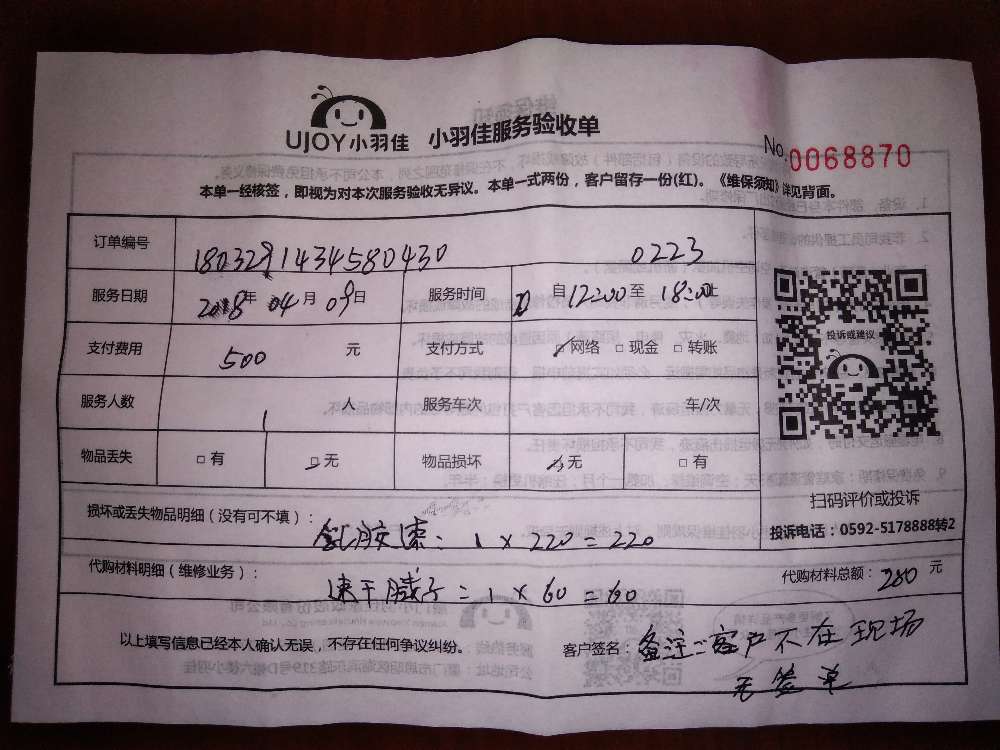 UJOY小羽佳 小羽佳服务验收单
No. 0068870
本单一经核签，即视为对本次服务验收无异议。本单一式两份，客户留存一份(红)。《维保须知》详见背面。
订单编号 1803291434580430 0223
服务日期 2018年 04月 09日 服务时间 自12:00至 18:00止
支付费用 500 元 支付方式 ☑网络 □现金 □转账
服务人数 1 人 服务车次 车/次
物品丢失 □有 ☑无 物品损坏 ☑无 □有
投诉或建议
扫码评价或投诉
投诉电话：0592-5178888转2
损坏或丢失物品明细（没有可不填）：
乳胶漆：1 × 220 = 220
代购材料明细（维修业务）：
速干腻子 = 1 × 60 = 60
代购材料总额：280 元
以上填写信息已经本人确认无误，不存在任何争议纠纷。
客户签名：备注：客户不在现场
无签单